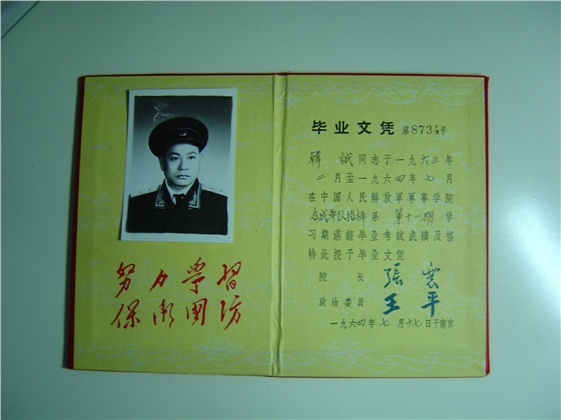 努力学習
保衛國防
毕业文凭 第8734号
韩诚同志于一九六三年
二月至一九六四年七月
在中国人民解放军军事学院
合成军队指挥系 第十一期 学
习期满经毕业考试成绩及格
特此授予毕业文凭
院长 張震
政治委员 王平
一九六四年七月十七日于南京